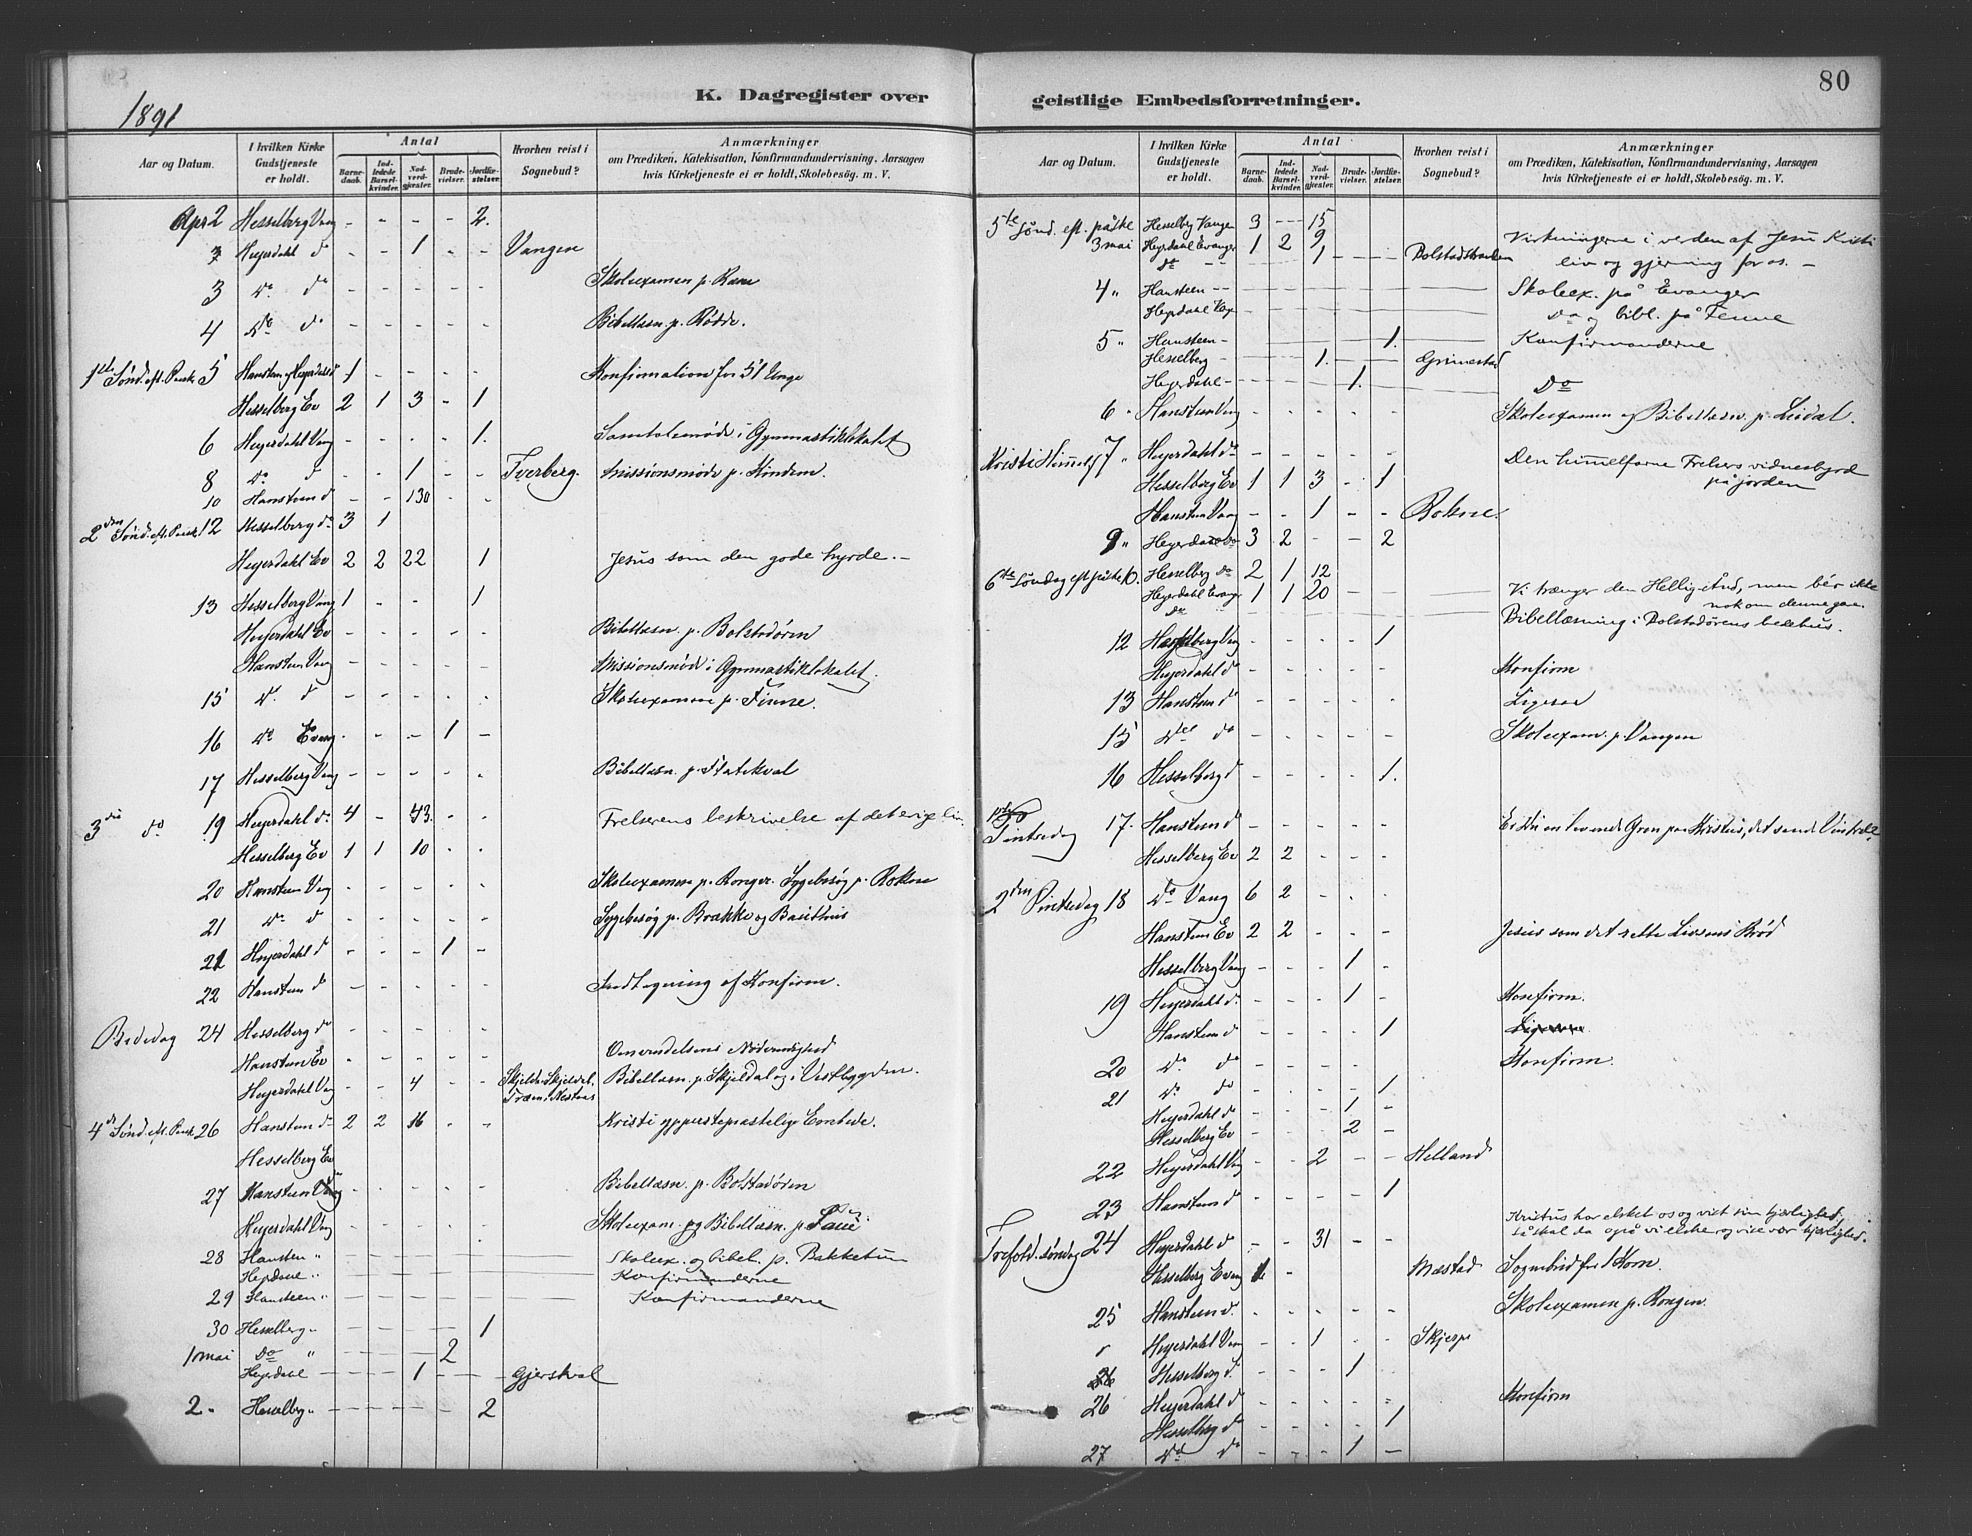 80
K. Dagregister over geistlige Embedsforretninger.
1891
Aar og Datum.
I hvilken Kirke Gudstjeneste er holdt.
Antal
Barnedaab.
Indledede Barselkvinder.
Nadverdgjester.
Brudevielser.
Jordfæstelser.
Hvorhen reist i Sognebud?
Anmærkninger
om Prædiken, Katekisation, Konfirmandundervisning, Aarsagen
hvis Kirketjeneste ei er holdt, Skolebesøg. m. V.
Apr 2 Hesselberg Vang - - - - 2.
3 Heyerdahl do - - 1 - - Vangen
3 do do - - - - - Skoleexamen p.
4 do do - - - - - Bibellæsn. p. Rødde.
1ste Sønd. eft. Paask. 5 Hansteen og Heyerdahl d 1 - - - - Konfirmation for 51 Unge
Hesselberg Ev 2 1 3 - 1
6 Heyerdahl Vang - - - - 1. Samtalemøde i Gymnastiklokalet
8 do d - - 1 - - Tverberg. Missionsmøde p. Kindem.
10 Hansteen d - - 130 - -
2den Sønd. eft. Paask. 12 Hesselberg do 3 1
Heyerdahl Ev 2 2 22 1 Jesus som den gode hyrde. -
13 Hesselberg Vang 1 - - - 1
Heyerdahl Ev - - - - - Bibellæsn. p. Bolstadøren
Hansteen Vang - - - - - Missionsmøde i Gymnastiklokalet.
15 do do - - - - - Skoleexamen p. Finne.
16 do Evang - - - 1 -
17 Hesselberg Vang - - - - - Bibellæsn. p.
3die do 19 Heyerdahl do 4 - 43. - - Frelserens beskrivelse af det evige liv.
Hesselberg Ev 1 1 10 - -
20 Hansteen Vang - - - - - Skoleexamen p. Ronger. Sygebesøg p. Rokne
21 do do - - - - - Sygebesøg p. Brække og
21 Heyerdahl d - - - 1 -
22 Hansteen do - - - - - Indtegning af Konfirm.
Bededag 24 Hesselberg do - - - - -
Hansteen Ev - - - - - Omvendelsens Nødvendighed
Heyerdahl Vang - - 4 - - Bibellæsn. p. Skjeldal og i Vestbygden.
4de Sønd. eft. Paask. 26 Hansteen do 2 2 16 - - Kristi ypperstepræstelige Embede.
Hesselberg Ev
27 Hansteen Vang - - - - - Bibellæsn. p. Bolstadøren
Heyerdahl Vang - - - - - Skoleexam. og Bibellæsn. p.
28 Hansteen " - - - - - Skoleex. og bibel. p. Bakketun
Heyerdahl " - - - - - Konfirmanderne
29 Hansteen " - - - - - Konfirmanderne
30 Hesselberg " - - - - 1
1 mai do " - - - 2
Heyerdahl - - 1 - - Gjerskval
2. Hesselberg " - - - - 2
Aar og Datum.
I hvilken Kirke Gudstjeneste er holdt.
Antal
Barnedaab.
Indledede Barselkvinder.
Nadverdgjester.
Brudevielser.
Jordfæstelser.
Hvorhen reist i Sognebud?
Anmærkninger
om Prædiken, Katekisation, Konfirmandundervisning, Aarsagen
hvis Kirketjeneste ei er holdt, Skolebesøg. m. V.
5te Sønd. eft. påske Hesselberg Vangen 3 - - 15
3 mai Heyerdahl Evanger 1 2 9 Virkningerne i verden af Jesu Kristi
do - - 1 - - liv og gjerning for os. -
4 " Hansteen - - Skoleex. på Evanger
Heyerdahl Do og bibl. på Fenne
5 " Hansteen - 1. Konfirmanderne
Hesselberg - 1. Grimestad
Heyerdahl - 1. Do
6 " Hansteen Vang - - - - - Skoleexamen og Bibellæsn. p. Lirdal.
Kristi Himmelf. 7 " Heyerdahl do - - - - - Den himmelfarne Frelsers vidnesbyrd
på jorden
Hesselberg Ev 1 1 3 - 1
Hansteen Vang - - 1 - - Rokne.
9 " Heyerdahl do 3 2 - - 2
6te Søndag eft påske 10. Hesselberg do 2 1 12
Heyerdahl Evanger 1 1 20 - - Vi trænger den Helligånd, men bør ikke
nok om denne gave
do Bibellæsning i Bolstadørens bedehus.
12 Hesselberg Vang - - - - 1
Heyerdahl d - - - - - Konfirm
13 Hansteen d - - - - - Ligesaa
15 do do - - - - - Skoleexam. p. Vangen
16 Hesselberg d - - - - 1.
1ste Pintsedag 17. Hansteen d - - - - - Er du en levende Gren paa Kristus, det sande Vintræ
Hesselberg Ev 2 2 - - -
2den Pintsedag 18 do Vang 6 2 - - -
Hansteen Ev 2 2 - - - Jesus som det rette Livsens Brød
Hesselberg Vang - - - 1 -
19 Heyerdahl d. - - - 1 - Konfirm.
Hansteen d - - - - 1
20 do do - - - - - Konfirm.
21 do do - - - - 1
Heyerdahl d - - - 1 -
Hesselberg Ev 2 -
22 Heyerdahl Vang - - 2 - - Helland
23 Hansteen d - - - - 1
Kristus har elsket os og vist sin kjærlighed,
så skal da også vi elske og vise vor kjærlighed.
Trefold. søndag 24 Heyerdahl d - - 31 - -
Hesselberg Evang 1 - Mæstad Sognebud fra
25 Hansteen d - - - - - Skoleexamen p. Rongen.
" Heyerdahl Vang - - 1 - - Skjerpe
Hesselberg d. - - - 1 -
26 Heyerdahl d - - - - - Konfirm
Hesselberg do - - - - 1
27 do do - - - 1 -